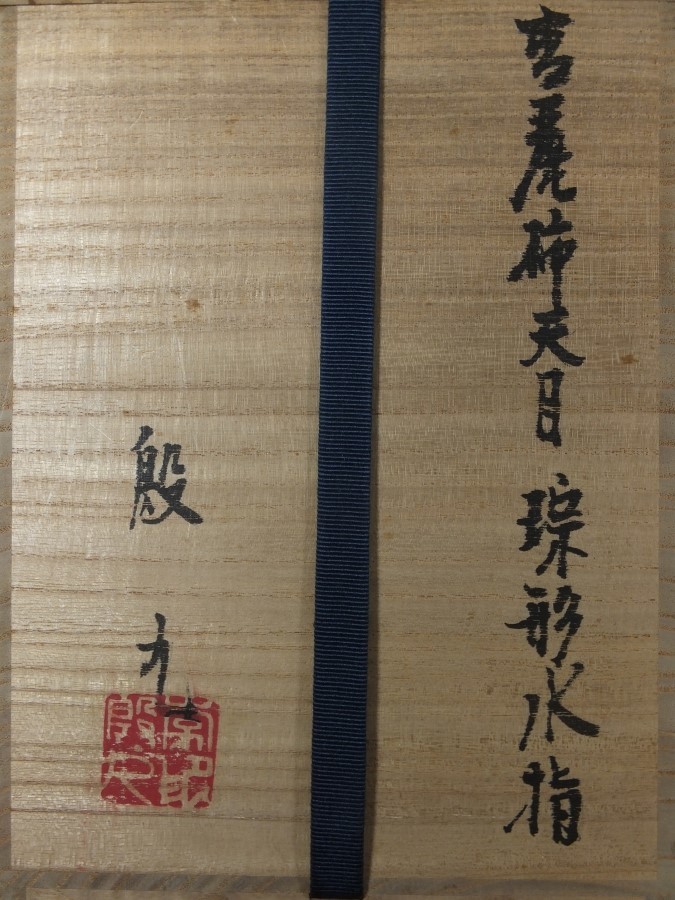 高麗柿天目 琮形水指
殷